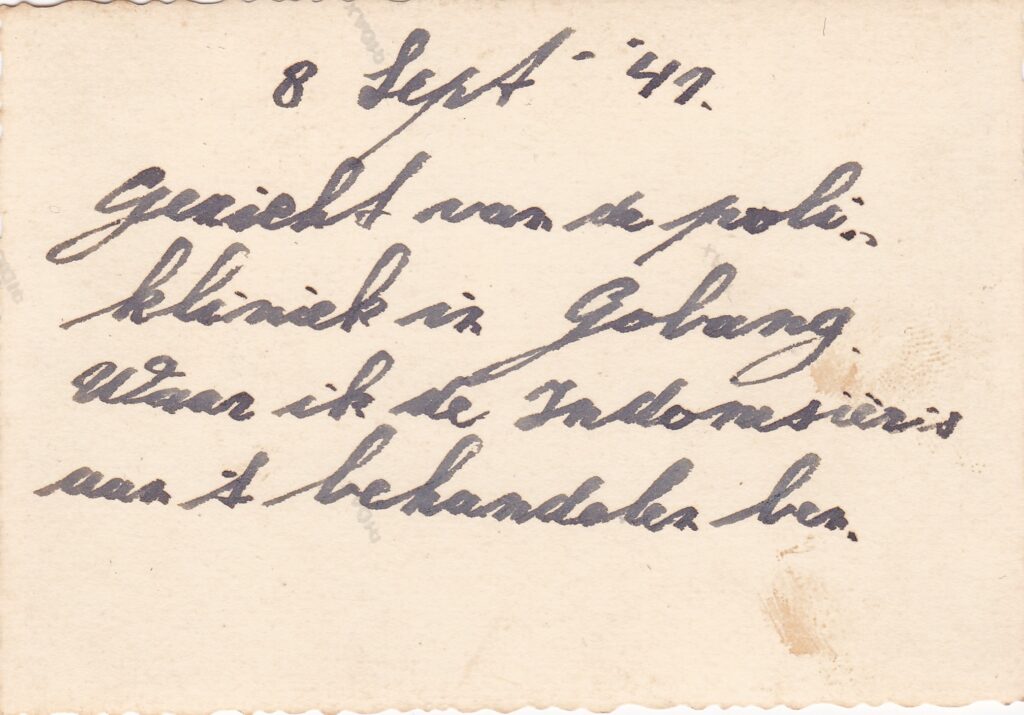 8 Sept - '47.
Gezicht van de poli-
kliniek in Gobang
Waar ik de Indonesiërs
aan 't behandelen ben.